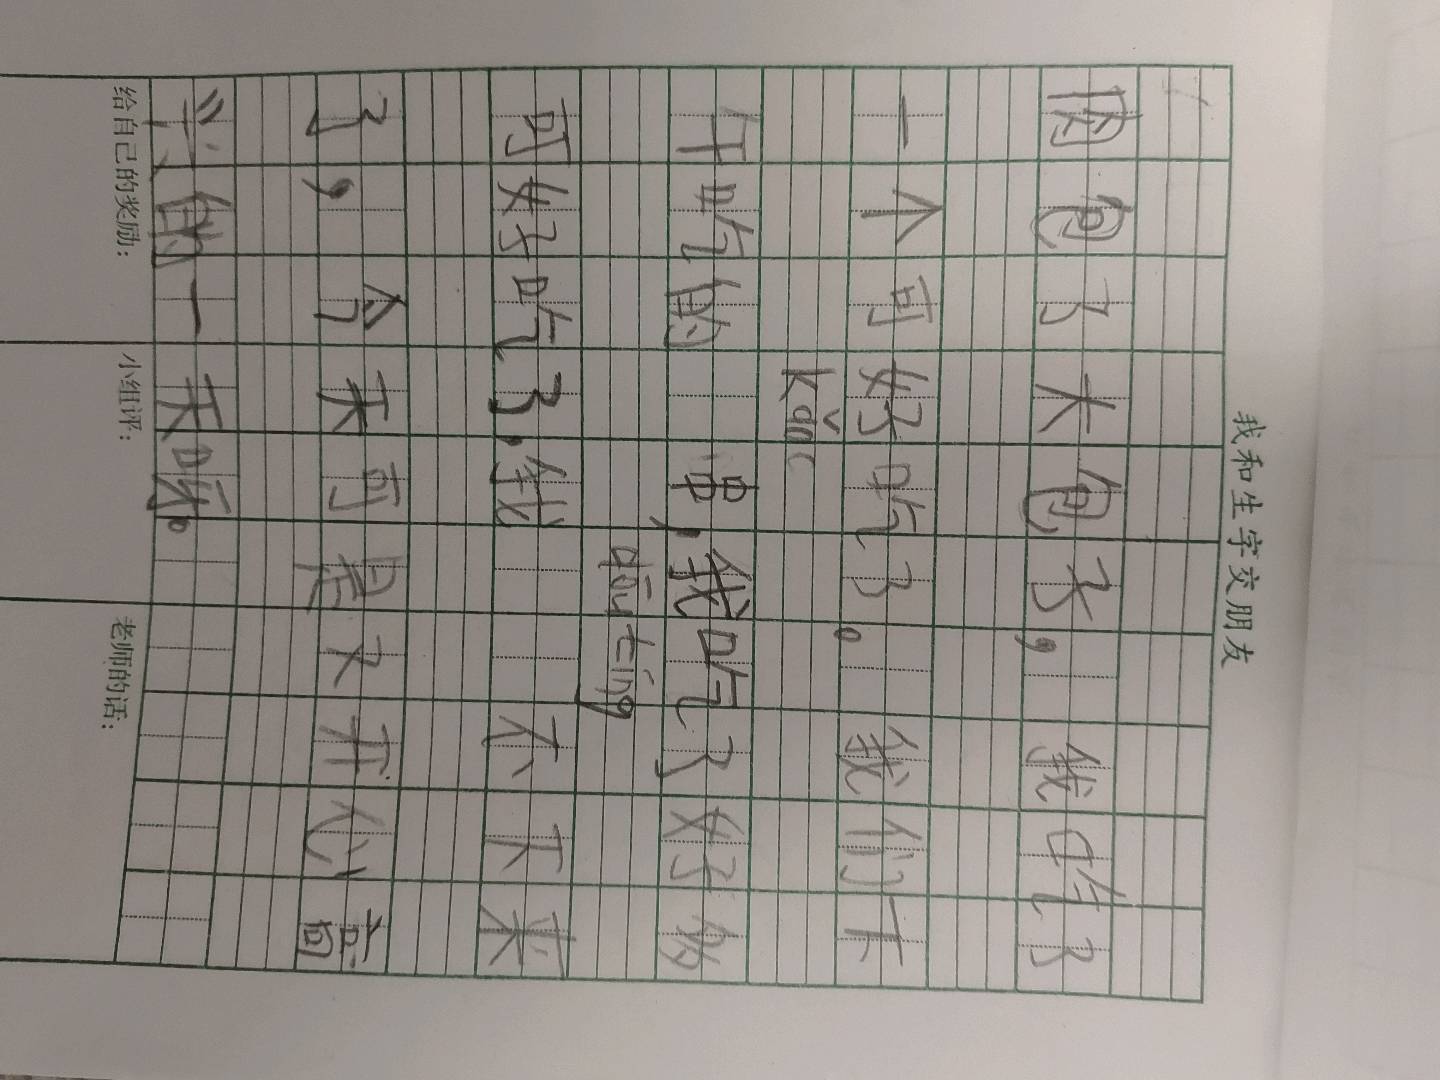 我和生字交朋友
肉包了大包子，我吃了
一个可好吃了。我们下
kǎo
午吃的 串，我吃了好多
dōu tíng
可好吃了，我 不下来
了，今天可是又开心高
兴的一天啊。
给自己的奖励： 小组评： 老师的话：